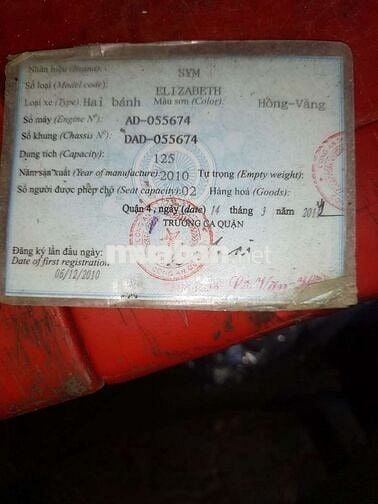 Nhãn hiệu (Brand): SYM
Số loại (Model code): ELIZABETH
Loại xe (Type) Hai bánh Màu sơn (Color): Hồng-Vàng
Số máy (Engine Nº): AD-055674
Số khung (Chassis Nº) DAD-055674
Dung tích (Capacity): 125
Năm sản xuất (Year of manufacture) 2010 Tự trọng (Empty weight):
Số người được phép chở (Seat capacity): 02 Hàng hoá (Goods):
Quận 4, ngày (date) 14 tháng 3 năm
TRƯỞNG CA QUẬN
Đăng ký lần đầu ngày:
Date of first registration
06/12/2010
muaban.net